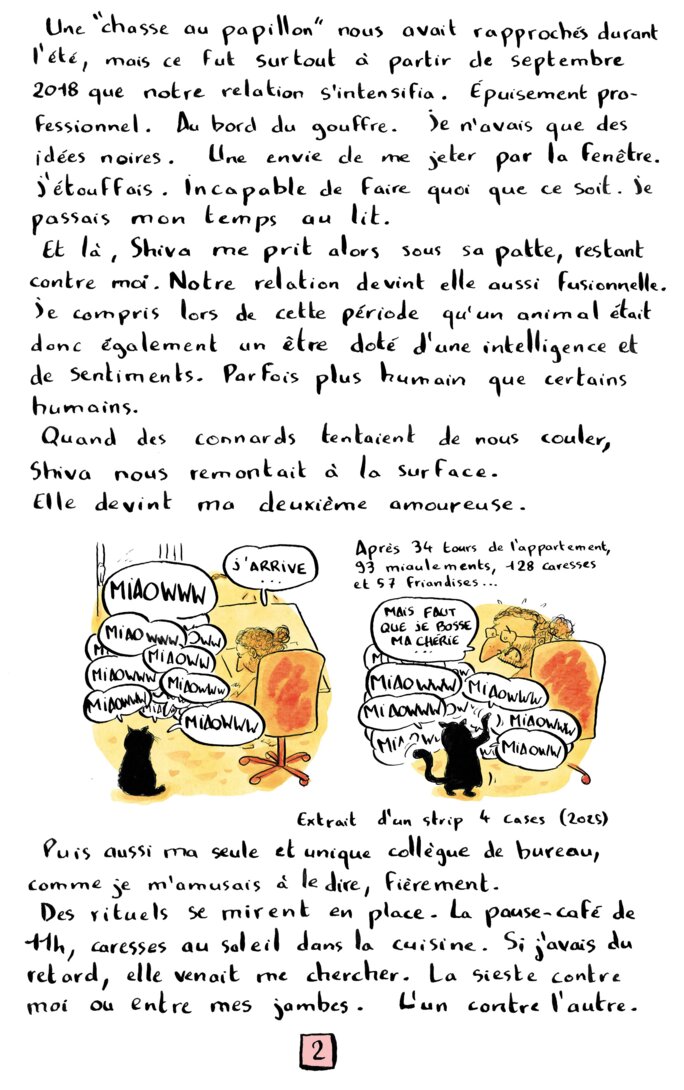 Une "chasse au papillon" nous avait rapprochés durant
l'été, mais ce fut surtout à partir de septembre
2018 que notre relation s'intensifia. Épuisement pro-
fessionnel. Au bord du gouffre. Je n'avais que des
idées noires. Une envie de me jeter par la fenêtre.
J'étouffais. Incapable de faire quoi que ce soit. Je
passais mon temps au lit.
Et là, Shiva me prit alors sous sa patte, restant
contre moi. Notre relation devint elle aussi fusionnelle.
Je compris lors de cette période qu'un animal était
donc également un être doté d'une intelligence et
de sentiments. Parfois plus humain que certains
humains.
Quand des connards tentaient de nous couler,
Shiva nous remontait à la surface.
Elle devint ma deuxième amoureuse.
J'ARRIVE
...
MIAOWWW
MIAOWWW
MIAOWW
MIAOWWW
MIAOWWW
MIAOWWW
MIAOWWW
Après 34 tours de l'appartement,
93 miaulements, 128 caresses
et 57 friandises...
MAIS FAUT
QUE JE BOSSE
MA CHÉRIE
...
MIAOWWW
MIAOWWW
MIAOWWW
MIAOWWW
MIAOWW
Extrait d'un strip 4 cases (2025)
Puis aussi ma seule et unique collègue de bureau,
comme je m'amusais à le dire, fièrement.
Des rituels se mirent en place. La pause-café de
11h, caresses au soleil dans la cuisine. Si j'avais du
retard, elle venait me chercher. La sieste contre
moi ou entre mes jambes. L'un contre l'autre.
2